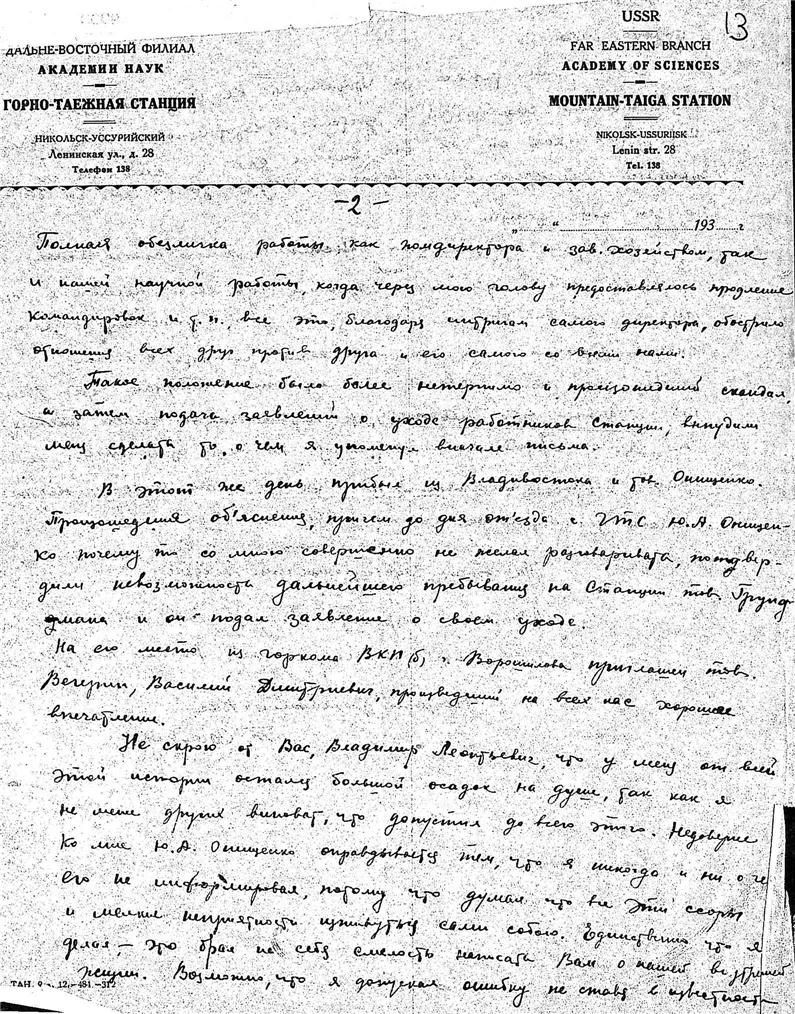 СССР
ДАЛЬНЕ-ВОСТОЧНЫЙ ФИЛИАЛ
АКАДЕМИИ НАУК
ГОРНО-ТАЕЖНАЯ СТАНЦИЯ
НИКОЛЬСК-УССУРИЙСКИЙ
Ленинская ул., д. 28
Телефон 138
USSR
FAR EASTERN BRANCH
ACADEMY OF SCIENCES
MOUNTAIN-TAIGA STATION
NIKOLSK-USSURIJSK
Lenin str. 28
Tel. 138
13
-2-
„ “ 193 г
Полная обезличка работы как помдиректора и зав. хозяйством, так
и нашей научной работы, когда через мою голову предоставлялось продление
командировок и т.п., все это, благодаря интригам самого директора, обострило
отношения всех друг против друга и его самого со всеми нами.
Такое положение было более нетерпимо и происшедший скандал,
а затем подача заявлений о уходе работников Станции, вынудили
меня сделать то, о чем я упомянул вначале письма.
В этот же день прибыл из Владивостока и тов. Онищенко.
Происшедшия об'яснения, причем до дня от'езда с ГТС Ю.А. Онищен-
ко почему то со мною совершенно не желал разговаривать, подтвер-
дили невозможность дальнейшего пребывания на Станции тов. Грунд-
мана и он подал заявление о своем уходе.
На его место из горкома ВКП(б) г. Ворошилова приглашен тов.
Вегерин, Василий Дмитриевич, произведший на всех нас хорошее
впечатление.
Не скрою от Вас, Владимир Леонтьевич, что у меня от всей
этой истории остался большой осадок на душе, так как я
не менее других виноват, что допустил до всего этого. Недоверие
ко мне Ю.А. Онищенко оправдывается тем, что я никогда и ни о че
его не информировал, потому что думал что все эти ссоры
и мелкие неприятности изживутся сами собою. Единственно что я
делал, – это брал на себя смелость написать Вам о нашей внутренней
жизни. Возможно, что я допускал ошибку не ставя в известность